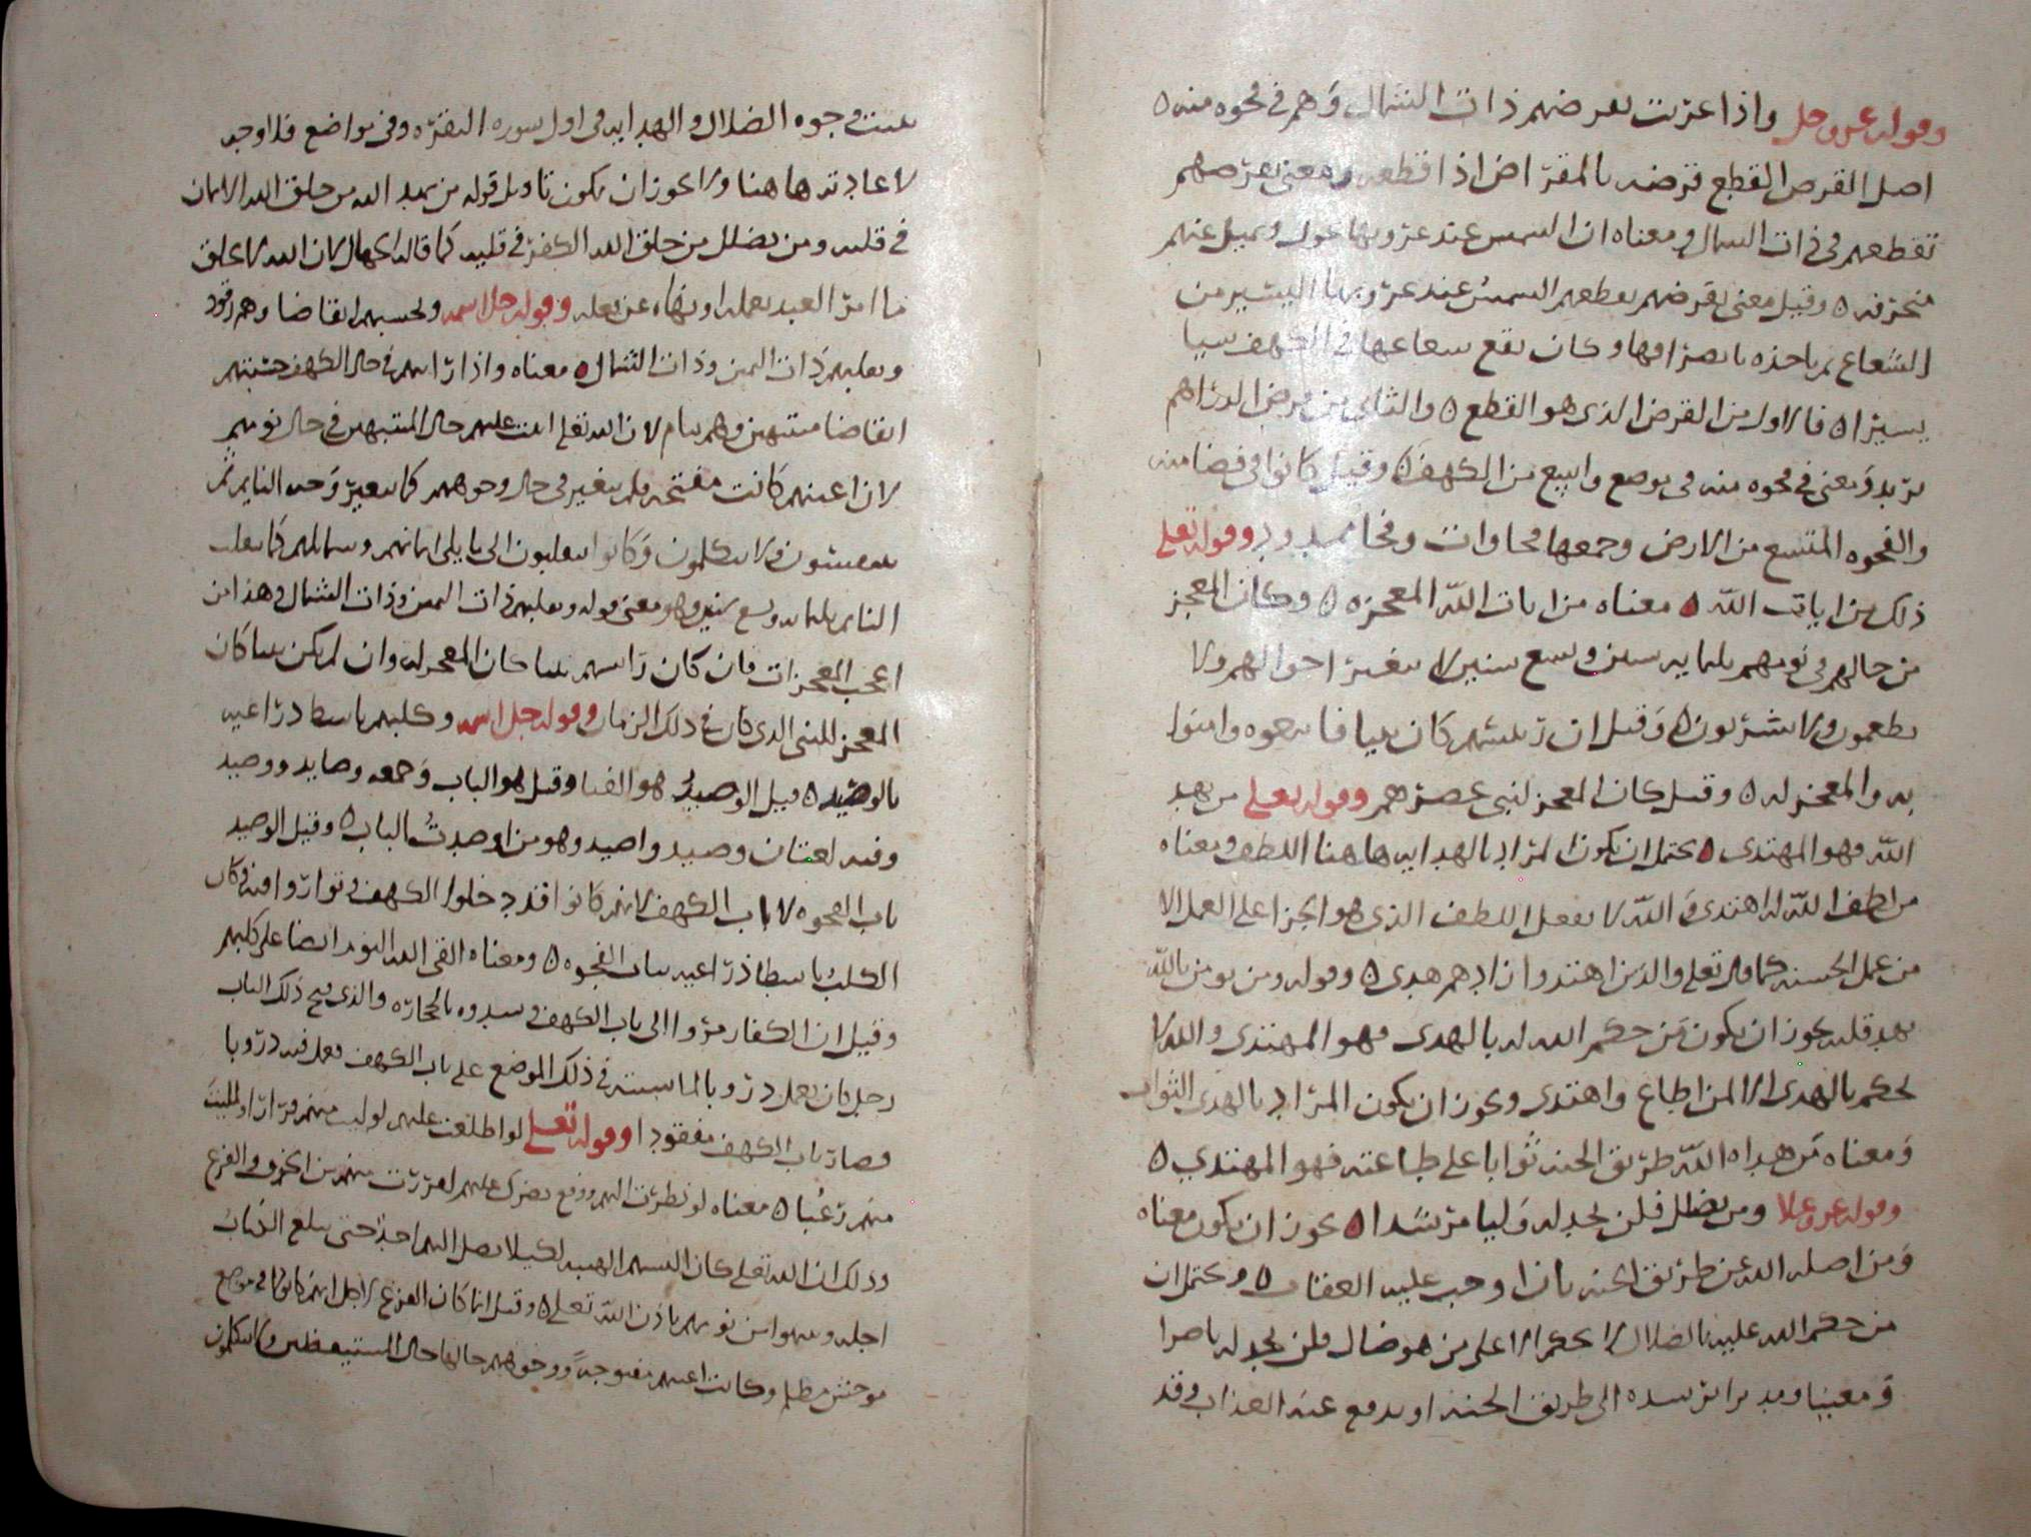 وقوله عز وجل واذا غربت تقرضهم ذات الشمال وهم في فجوه منه ه
اصل القرض القطع قرضه بالمقراض اذا قطعه ومعنى تقرضهم
تقطعهم في ذات الشمال ومعناه ان الشمس عند غروبها تميل عنهم
منحرفه ه وقيل معنى تقرضهم تعطيهم الشمس عند غروبها اليسير من
الشعاع ثم ياخذه بانصرافها وكان يقع شعاعها في الكهف شيا
يسيرا ه فالاول من القرض الذي هو القطع ه والثاني من قرض الدراهم
يريد ومعنى في فجوه منه في موضع واسع من الكهف ه وقيل كانوا في فضا منه
والفجوه المتسع من الارض وجمعها فجاوات وفجا ممدود وقوله تعلى
ذلك من ايات الله ه معناه من ايات الله المعجزه ه وكان المعجز
من حالهم في نومهم ثلثمايه سنين وتسع سنين لا تتغير احوالهم ولا
يطعمون ولا يشربون ه وقيل ان رئيسهم كان نبيا فاتبعوه وامنوا
به والمعجز له ه وقيل كان المعجز لنبي عصرهم وقوله تعلى من يهد
الله فهو المهتدى ه يحتمل ان يكون المراد بالهدايه هاهنا اللطف ومعناه
من لطف الله له اهتدى والله لا يفعل اللطف الذي هو الجزا على العمل الا
من عمل الحسنه كما قال تعلى والذين اهتدوا زادهم هدى ه وقوله ومن يومن بالله
يهد قلبه يجوز ان يكون من حكم الله له بالهدى فهو المهتدى والله لا
يحكم بالهدى الا لمن اطاع واهتدى ويجوز ان يكون المراد بالهدى الثواب
ومعناه من هداه الله طريق الجنه ثوابا على طاعته فهو المهتدي ه
وقوله عز وعلا ومن يضلل فلن تجد له وليا مرشدا ه يجوز ان يكون معناه
ومن اضله الله عن طريق الجنه بان اوجب عليه العقاب ه ويحتمل ان
من حكم الله عليه بالضلال لا يحكم الا على من هو ضال فلن تجد له ناصرا
ومعينا يرشده الى طريق الجنه او يدفع عنه العذاب وقد
بينت وجوه الضلال والهدايه في اول سوره البقره وفي مواضع فلا وجه
لاعادته هاهنا ولا يجوز ان يكون تاويل قوله من يهد الله من خلق الله الايمان
في قلبه ومن يضلل من خلق الله الكفر في قلبه كما قاله الجهال لان الله لا يخلق
ما امر العبد بعمله او نهاه عن فعله وقوله جل اسمه وتحسبهم ايقاضا وهم رقود
ونقلبهم ذات اليمين وذات الشمال ه معناه واذا رايتهم في حال الكهف حسبتهم
ايقاضا منتبهين وهم نيام لان الله تعلى اثبت عليهم حال المنتبهين في حال نومهم
لان اعينهم كانت مفتحه ولم يتغير في حال وجوههم كما يتغير وجه النايم ثم
يتنفسون ولا يتكلمون وكانوا يتقلبون الى ما يلي ايمانهم وشمايلهم كما يتقلب
النايم ثلثمايه وتسع سنين وهو معنى قوله ونقلبهم ذات اليمين وذات الشمال وهذا من
اعجب المعجزات فان كان رئيسهم نبيا كان المعجز له وان لم يكن نبيا كان
المعجز للنبي الذي كان في ذلك الزمان وقوله جل اسمه وكلبهم باسط ذراعيه
بالوصيد ه قيل الوصيد هو الفنا وقيل هو الباب وجمعه وصايد ووصيد
وفيه لغتان وصيد واصيد وهو من اوصدت الباب ه وقيل الوصيد
باب الفجوه لا باب الكهف لانهم كانوا قد دخلوا الكهف وتواروا فيه وكان
الكلب باسطا ذراعيه بباب الفجوه ه ومعناه القى الله النوم ايضا على كلبهم
وقيل ان الكفار مروا الى باب الكهف وسدوه بالحجاره والذي فتح ذلك الباب
رجل كان يعمل دروبا لماشيته في ذلك الموضع على باب الكهف فعمل فيه دروبا
فصار باب الكهف مفقودا وقوله تعلى لو اطلعت عليهم لوليت منهم فرارا ولملئت
منهم رعبا ه معناه لو نظرت اليهم ووقع بصرك عليهم لفررت منهم من الخوف والفزع
وذلك ان الله تعلى كان البسهم الهيبه لكيلا يصل اليهم احد حتى يبلغ الكتاب
اجله وينتبهوا من نومهم باذن الله تعلى ه وقيل انما كان الفزع لاجل انهم كانوا في موضع
موحش مظلم وكانت اعينهم مفتوحه ووجوههم حالها حال المستيقظين ولا يتكلمون